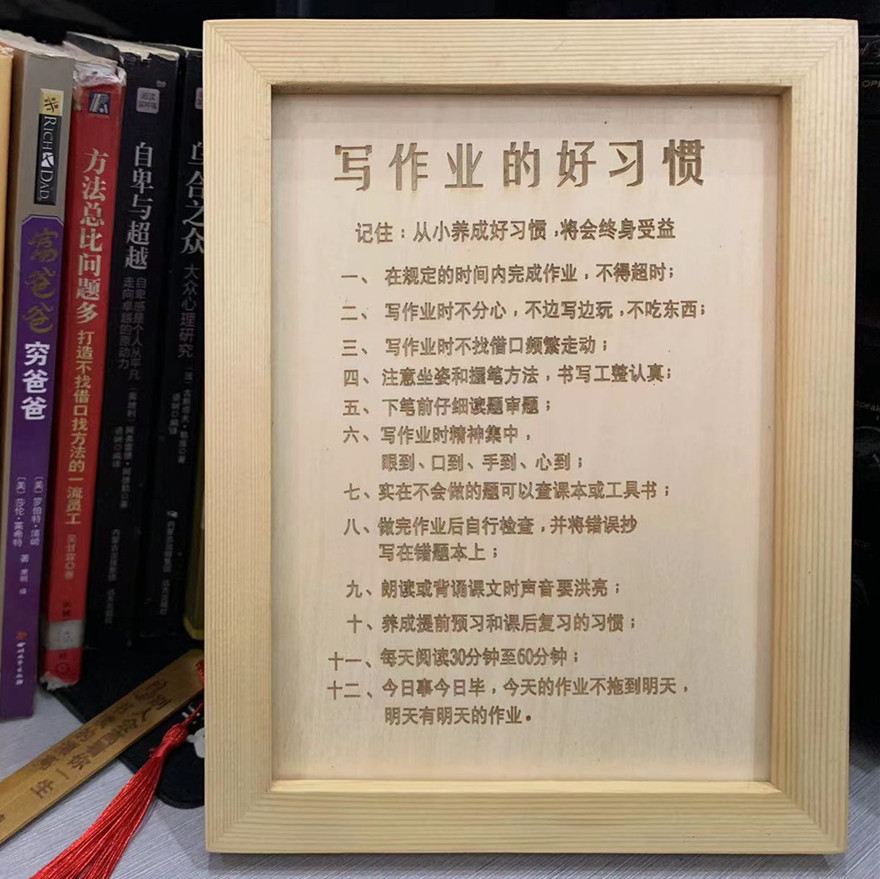 写作业的好习惯
记住：从小养成好习惯，将会终身受益
一、在规定的时间内完成作业，不得超时；
二、写作业时不分心，不边写边玩，不吃东西；
三、写作业时不找借口频繁走动；
四、注意坐姿和握笔方法，书写工整认真；
五、下笔前仔细读题审题；
六、写作业时精神集中，
眼到、口到、手到、心到；
七、实在不会做的题可以查课本或工具书；
八、做完作业后自行检查，并将错误抄
写在错题本上；
九、朗读或背诵课文时声音要洪亮；
十、养成提前预习和课后复习的习惯；
十一、每天阅读30分钟至60分钟；
十二、今日事今日毕，今天的作业不拖到明天，
明天有明天的作业。
RICH DAD
富爸爸
穷爸爸
[美] 罗伯特·清崎
[美] 莎伦·莱希特 著
方法总比问题多
打造不找借口找方法的一流员工
吴甘霖 著
自卑与超越
自卑感是个人从平凡
走向卓越的原动力
乌合之众
大众心理研究